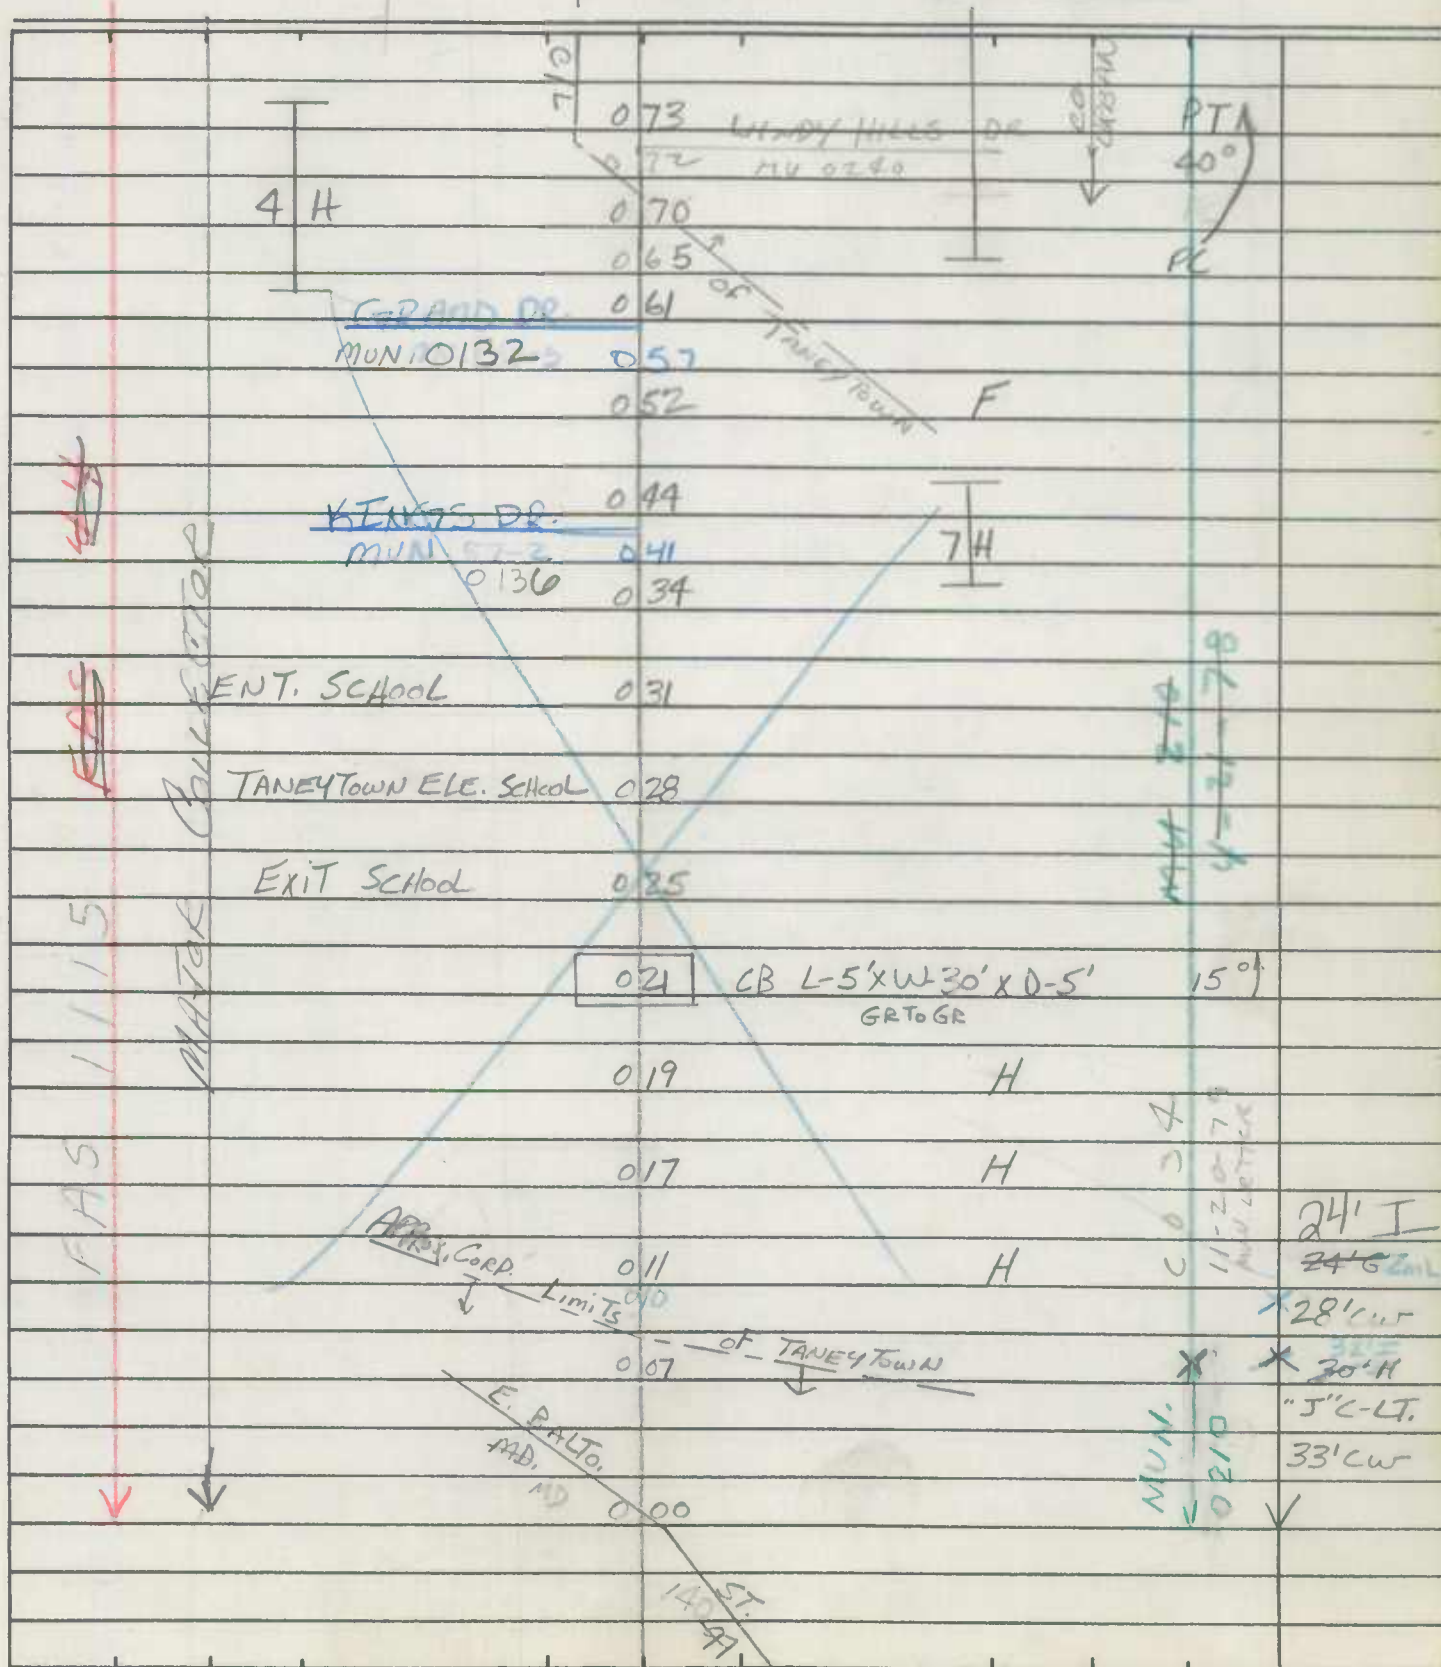 C/L
0 73 WINDY HILLS DR
72 MU 0240
CO
URBAN
PT
40°
4 H
0 70
0 65
PC
OF TANEYTOWN
GRAND DR. 0 61
MUN. 0132 0 57
0 52 F
0 44
KINGS DR.
MUN 57-2 0 41
0136
7 H
0 34
ENT. SCHOOL 0 31
TANEYTOWN ELE. SCHOOL 0 28
EXIT SCHOOL 0 25
0 21 CB L-5'XW-30'X D-5' 15°
GR TO GR
0 19 H
0 17 H
0 11 H
APPROX. CORP. LIMITS OF TANEYTOWN
0 10
0 07
E. BALTO. ST.
MD.
MD
0 00
140
FAS 1115
FAS
MAJOR COLLECTOR
4-21-78
CO 34
11-20-79
MUN LETTER
MUN.
0210
24' I
24' G
28' CW
30' H
"J" C-LT.
33' CW